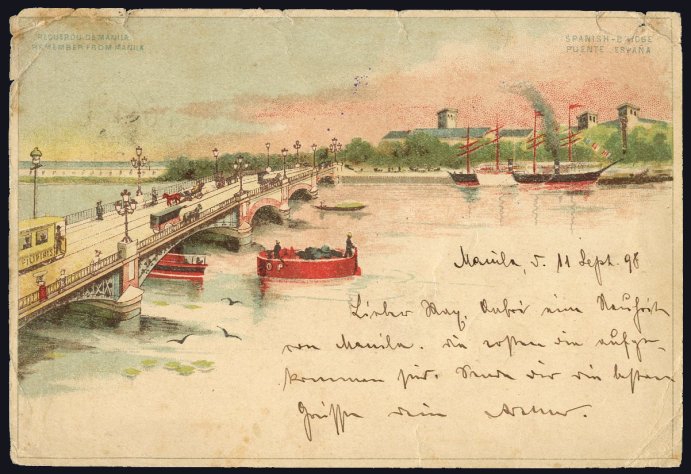 RECUERDO DE MANILA
REMEMBER FROM MANILA
SPANISH-BRIDGE
PUENTE ESPAÑA
Manila, d. 11 Sept. 98
Lieber May. Anbei eine Neuheit
von Manila. die ersten die aufge-
kommen sind. Sende dir die besten
Grüsse dein